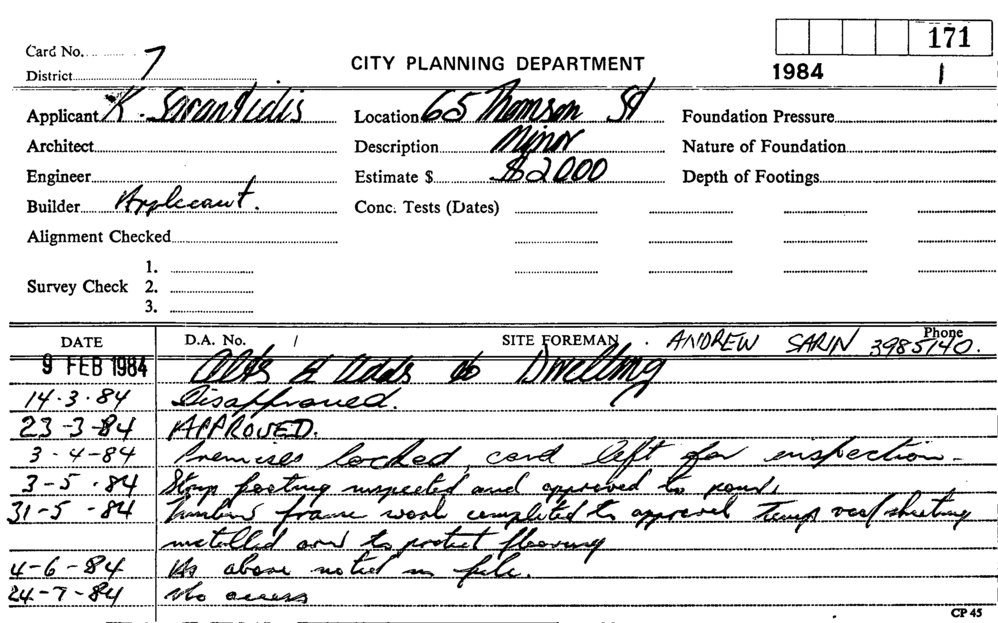 171
Card No. 7 CITY PLANNING DEPARTMENT 1984 1
District
Applicant K. Sarantidis Location 65 Thomson St Foundation Pressure
Architect Description Minor Nature of Foundation
Engineer Estimate $ $2000 Depth of Footings
Builder Applicant. Conc. Tests (Dates)
Alignment Checked
1.
Survey Check 2.
3.
DATE D.A. No. / SITE FOREMAN . ANDREW SARIN Phone 3985140.
9 FEB 1984 Alts & Adds to Dwelling
14.3.84 Disapproved.
23-3-84 APPROVED.
3-4-84 Premises locked, card left for inspection-
3-5.84 Strip footing inspected and approved to pour.
31-5-84 Timber frame work completed to approval Temp roof sheeting
installed and to protect flooring
4-6-84 As above noted in file.
24-7-84 No access
CP 45